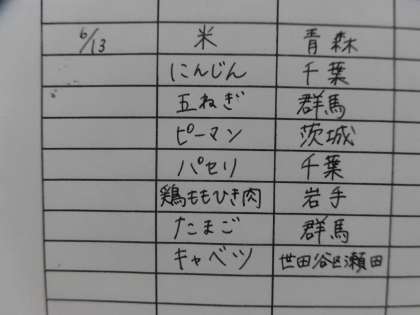 6/13 米 青森
にんじん 千葉
玉ねぎ 群馬
ピーマン 茨城
パセリ 千葉
鶏ももひき肉 岩手
たまご 群馬
キャベツ 世田谷区瀬田